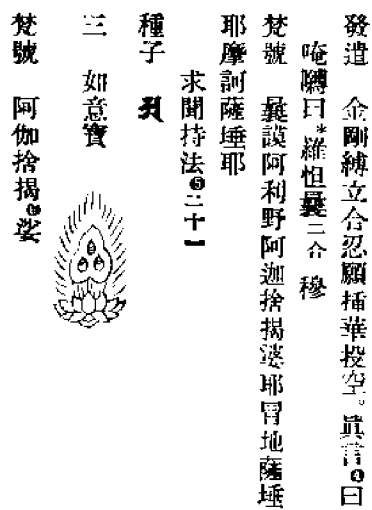 發遣　金剛縛立合忍願插華投空。眞言❹曰
唵嚩日*羅怛曩三合　穆
梵號　曩謨阿利野阿迦捨揭婆耶冒地薩埵
耶摩訶薩埵耶
求聞持法❺二十一
種子
三　如意寶
梵號　阿伽捨揭娑